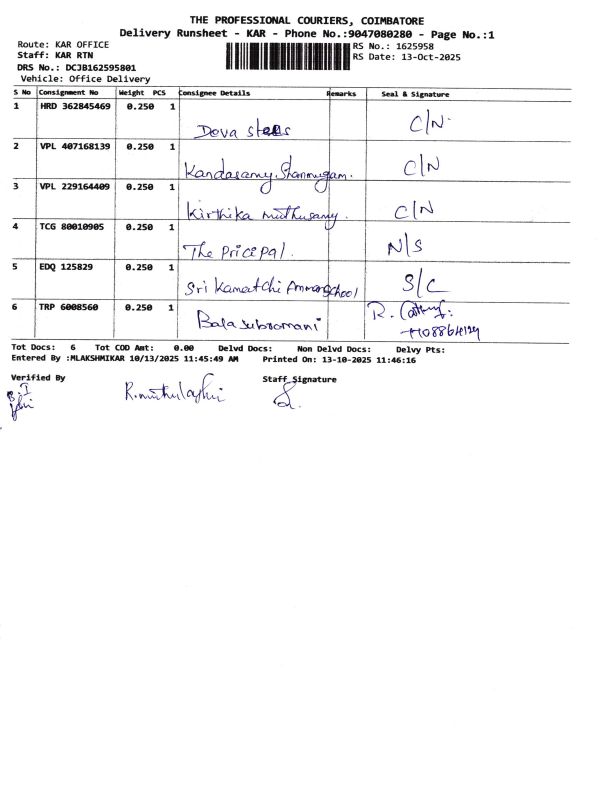 THE PROFESSIONAL COURIERS, COIMBATORE
Delivery Runsheet - KAR - Phone No.:9047080280 - Page No.:1
Route: KAR OFFICE RS No.: 1625958
Staff: KAR RTN RS Date: 13-Oct-2025
DRS No.: DCJB162595801
Vehicle: Office Delivery
S No Consignment No Weight PCS Consignee Details Remarks Seal & Signature
1 HRD 362845469 0.250 1
Deva C/N
2 VPL 407168139 0.250 1
Kandasamy. Shanmugam. C/N
3 VPL 229164409 0.250 1
Kirthika muthusamy. C/N
4 TCG 80010905 0.250 1
The Pricepal. N/S
5 EDQ 125829 0.250 1
Sri Kamatchi Amman School S/C
6 TRP 6008560 0.250 1
Balasubromani R.
Tot Docs: 6 Tot COD Amt: 0.00 Delvd Docs: Non Delvd Docs: Delvy Pts:
Entered By :MLAKSHMIKAR 10/13/2025 11:45:49 AM Printed On: 13-10-2025 11:46:16
Verified By Staff Signature